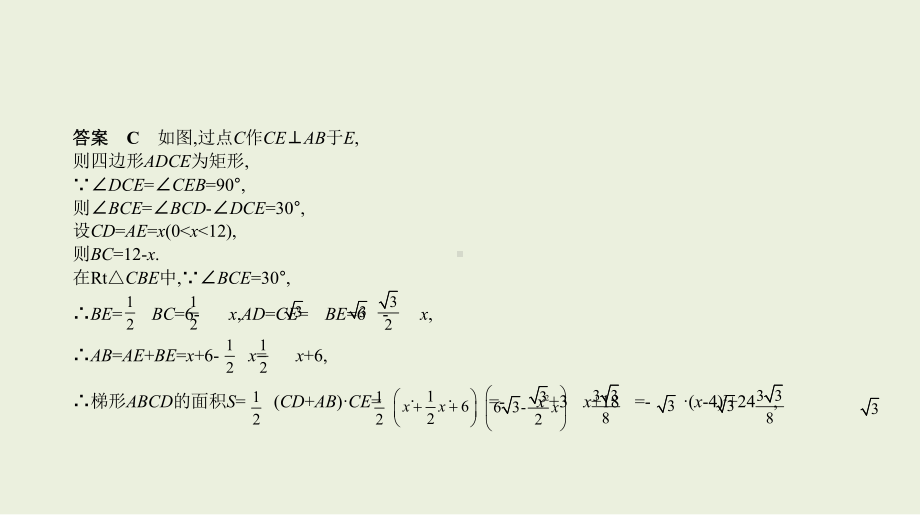 答案 C 如图,过点C作CE⊥AB于E,
则四边形ADCE为矩形,
∵∠DCE=∠CEB=90°,
则∠BCE=∠BCD-∠DCE=30°,
设CD=AE=x(0<x<12),
则BC=12-x.
在Rt△CBE中,∵∠BCE=30°,
∴BE=1/2 BC=6-1/2 x,AD=CE=√3 BE=6√3-√3/2 x,
∴AB=AE+BE=x+6-1/2 x=1/2 x+6,
∴梯形ABCD的面积S=1/2 (CD+AB)·CE=1/2·(x+1/2 x+6)·(6√3-√3/2 x)=-3√3/8 x²+3√3 x+18√3=-3√3/8·(x-4)²+24√3,